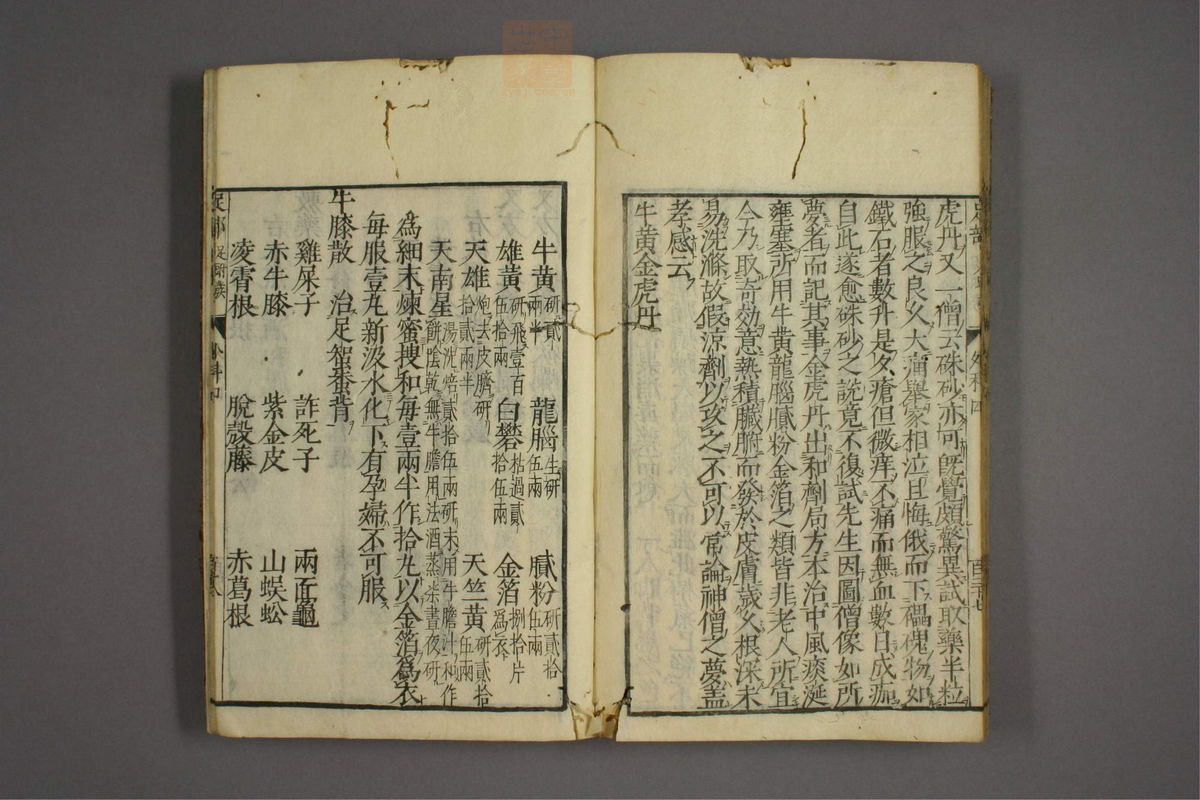 虎丹又一僧云硃砂亦可既覺頗驚異試取藥半粒
強服之良久大痛舉家相泣且悔俄而下礧磈物如
鐵石者數升是夕瘡但微痒不痛而無血數日成痂
自此遂愈硃砂之説竟不復試先生因圖僧像如所
夢者而記其事金虎丹出和劑局方本治中風痰涎
壅塞所用牛黄龍腦膩粉金箔之類皆非老人所宜
今乃取奇効意熱積臟腑而發於皮膚歲久根深未
易洗滌故假涼劑以攻之不可以常論神僧之夢蓋
孝感云
牛黄金虎丹
牛黄研貳兩半 龍腦生研伍兩 膩粉研貳拾伍兩
雄黄研飛壹百伍拾兩 白礬枯過貳拾伍兩 金箔捌拾片爲衣
天雄炮去皮臍研拾貳兩半 天竺黄研貳拾伍兩
天南星湯洗焙貳拾伍兩研末用牛膽汁和作餅陰乾無牛膽用法酒蒸柒晝夜研
爲細末煉蜜搜和每壹兩半作拾丸以金箔爲衣
每服壹丸新汲水化下有孕婦不可服
牛膝散 治足蜘蛛背
雞屎子 詐死子 兩面龜
赤牛膝 紫金皮 山蜈蚣
凌霄根 脫殼藤 赤葛根